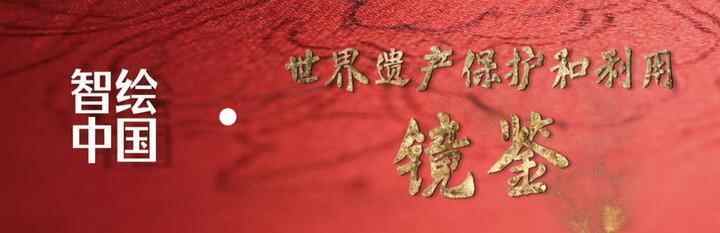 智绘
中国
世界遗产保护和利用
镜鉴